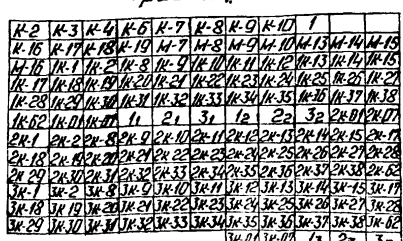 К-2 К-3 К-4 К-6 К-7 К-8 К-9 К-10 1
К-16 К-17 К-18 К-19 М-7 М-8 М-9 М-10 М-13 М-14 М-15
М-16 1К-1 1К-2 1К-8 1К-9 1К-10 1К-11 1К-12 1К-13 1К-14 1К-15
1К-17 1К-18 1К-19 1К-20 1К-21 1К-22 1К-23 1К-24 1К-25 1К-26 1К-27
1К-28 1К-29 1К-30 1К-31 1К-32 1К-33 1К-34 1К-35 1К-36 1К-37 1К-38
1К-62 1К-01 1К-07 1₁ 2₁ 3₁ 1₂ 2₂ 3₂ 2К-01 2К-07
2К-1 2К-2 2К-8 2К-9 2К-10 2К-11 2К-12 2К-13 2К-14 2К-15 2К-17
2К-18 2К-19 2К-20 2К-21 2К-22 2К-23 2К-24 2К-25 2К-26 2К-27 2К-28
2К-29 2К-30 2К-31 2К-32 2К-33 2К-34 2К-35 2К-36 2К-37 2К-38 2К-62
3К-1 3К-2 3К-8 3К-9 3К-10 3К-11 3К-12 3К-13 3К-14 3К-15 3К-17
3К-18 3К-19 3К-20 3К-21 3К-22 3К-23 3К-24 3К-25 3К-26 3К-27 3К-28
3К-29 3К-30 3К-31 3К-32 3К-33 3К-34 3К-35 3К-36 3К-37 3К-38 3К-62
3К-01 3К-07